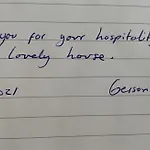 you for your hospitality
lovely house.
2021 Gerson